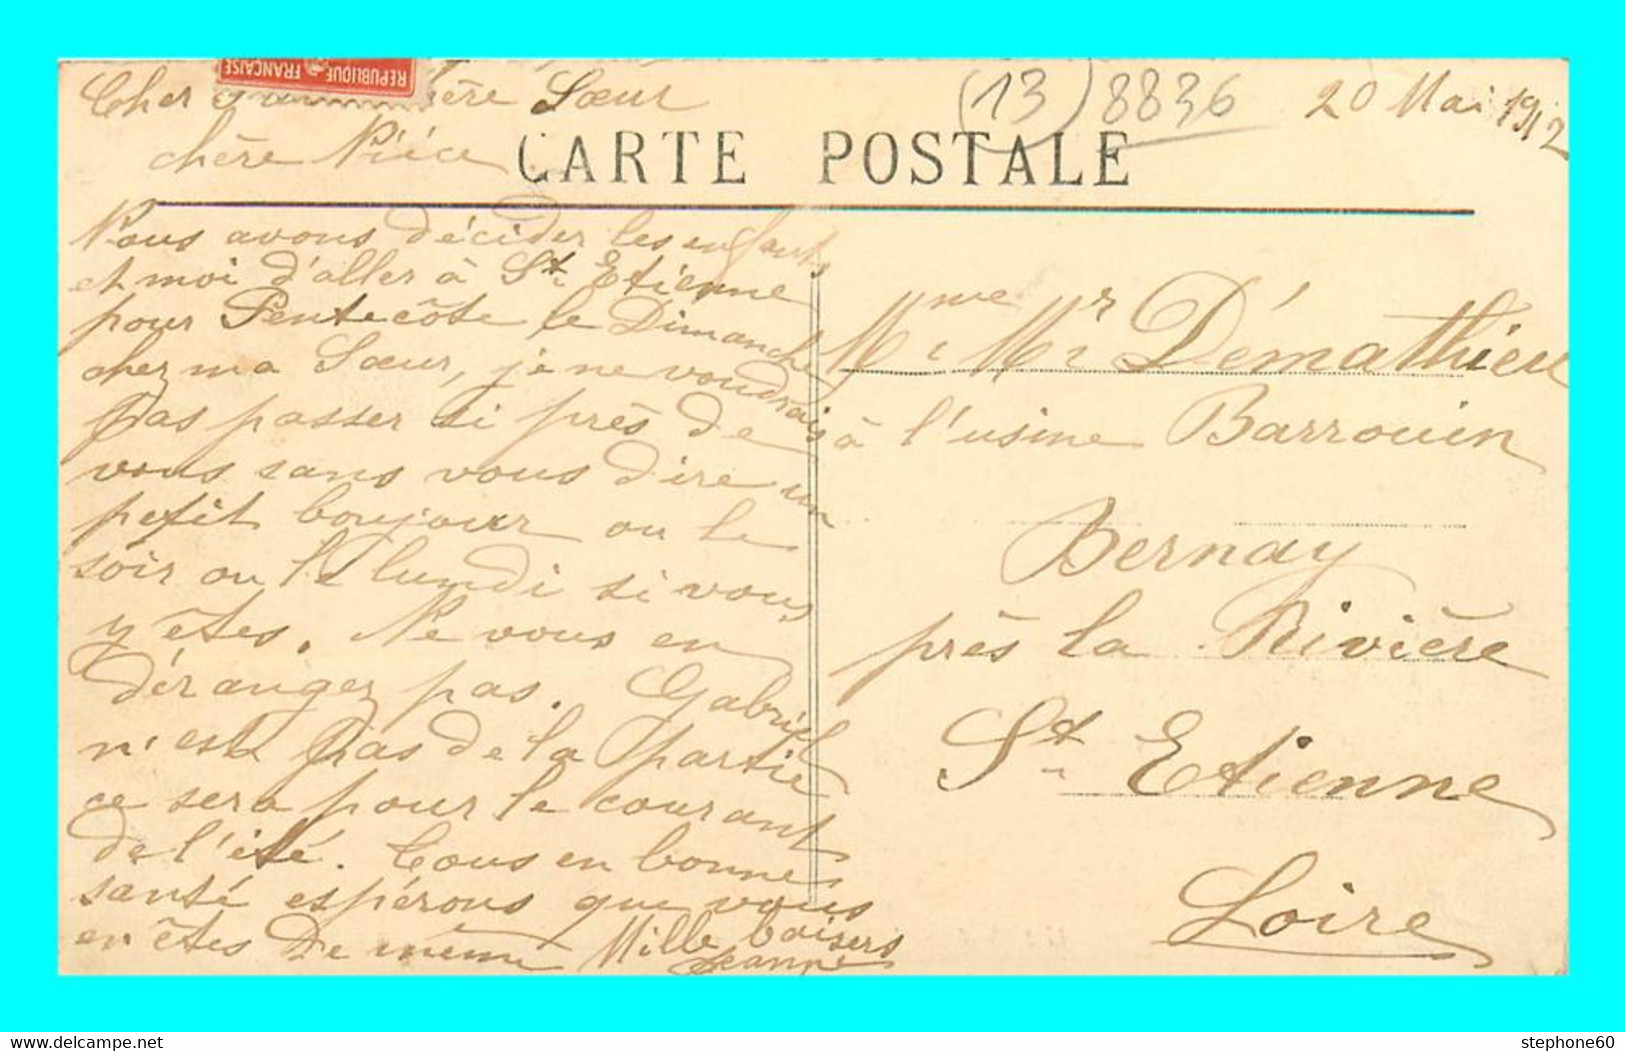 REPUBLIQUE FRANÇAISE
(13) 8836
20 Mai 1912
Cher chère Sœur
chère Nièce
CARTE POSTALE
Nous avons décider les enfants
et moi d'aller à St. Etienne
pour Pentecôte le Dimanche
chez ma Sœur, je ne voudrais
pas passer si près de
vous sans vous dire un
petit boujour ou le
soir ou le lundi si vous
y êtes. Ne vous en
dérangez pas. Gabriel
n'est pas de la partie
ce sera pour le courant
de l'été. Tous en bonne
santé espérons que vous
en êtes de même Mille baisers
Jeanne
Mme Mr Démathieu
à l'usine Barrouin
Bernay
près la Rivière
St. Etienne
Loire
stephone60